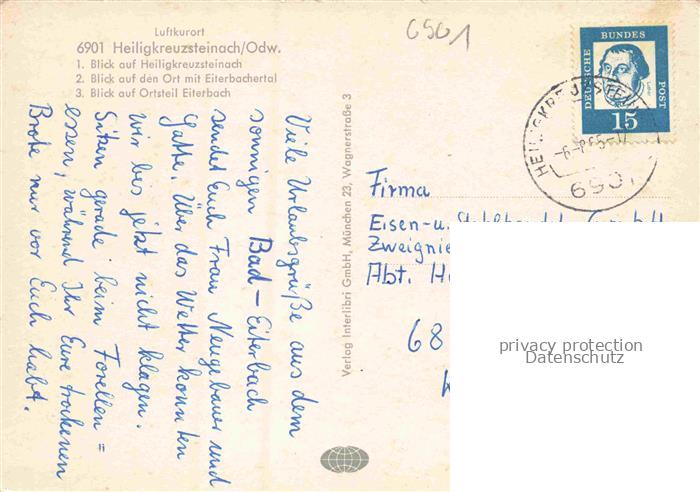 6901
Luftkurort
6901 Heiligkreuzsteinach/Odw.
1. Blick auf Heiligkreuzsteinach
2. Blick auf den Ort mit Eiterbachertal
3. Blick auf Ortsteil Eiterbach
Viele Urlaubsgrüße aus dem
sonnigen Bad-Eiterbach
sendet Euch Frau Neugebauer und
Gatte. Über das Wetter konnten
wir bis jetzt nicht klagen.
Sitzen gerade beim Forellen=
essen, während Ihr Eure trockenen
Brote nur vor Euch habt.
Verlag Interlibri GmbH, München 23, Wagnerstraße 3
DEUTSCHE BUNDES POST
Luther
15
HEILIGKREUZSTEIN
6901
Firma
Eisen-u. Stahlhandel GmbH
Zweignie
Abt. H
68
privacy protection
Datenschutz